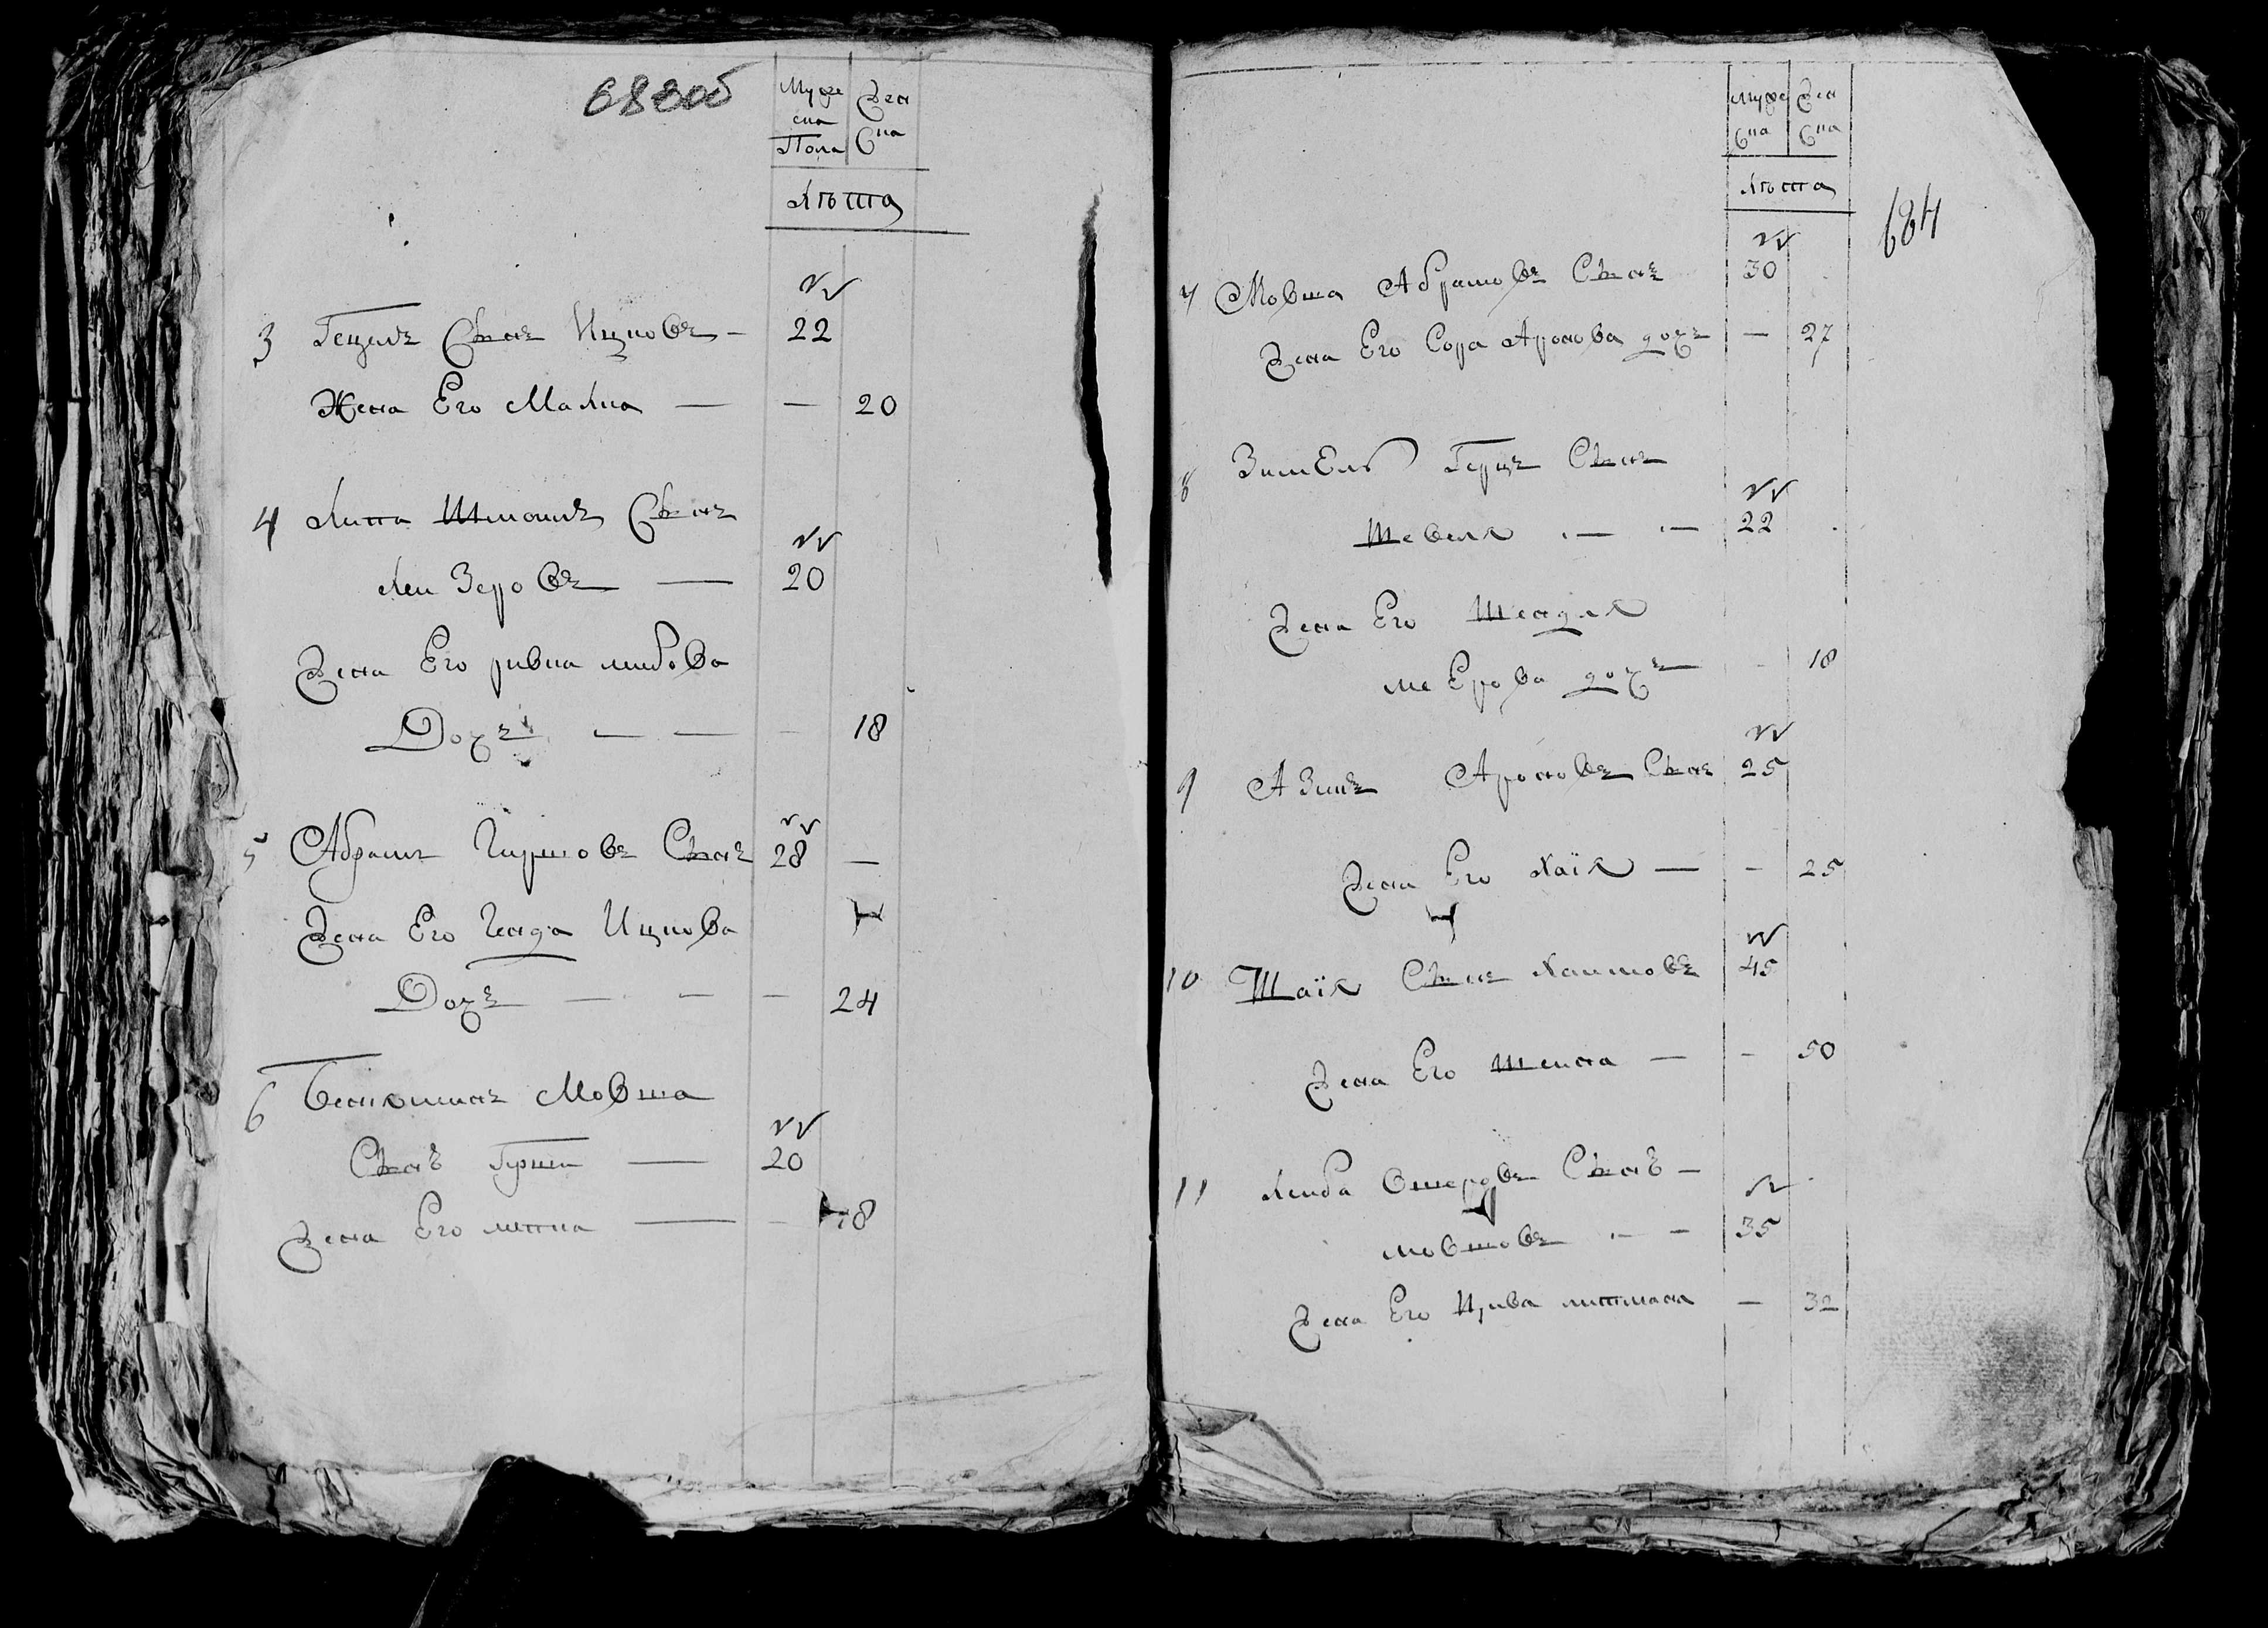 688об
Муже Жен
ска Ска
Пола
Лѣта
3 Гецель Сынъ Ицковъ — 22
Жена Его Малка — — 20
4 Липа Шмоилъ Сынъ
Лейзеровъ — 20
Жена Его ривка лейбова
Дочь — — — 18
5 Абрамъ Гиршовъ Сынъ 28 —
Жена Его Генда Ицкова
Дочь — — — 24
6 Бениоминъ Мовша
Сынъ Гирши — 20
Жена Его — — 18
684
Муже Жен
Ска Ска
лѣта
7 Мовша Абрамовъ Сынъ 30
Жена Его Сора Аронова дочь — 27
8 Зимель Герцъ Сынъ
Шевеля — — 22
Жена Его Шендля
меерова дочь — 18
9 Азикъ Ароновъ Сынъ 25
Жена Его Хаія — — 25
10 Шаія Сынъ Хаимовъ 45
Жена Его Шейна — — 50
11 Лейба Ошеровъ Сынъ —
мовшовъ — — 35
Жена Его Цива литмана — 32